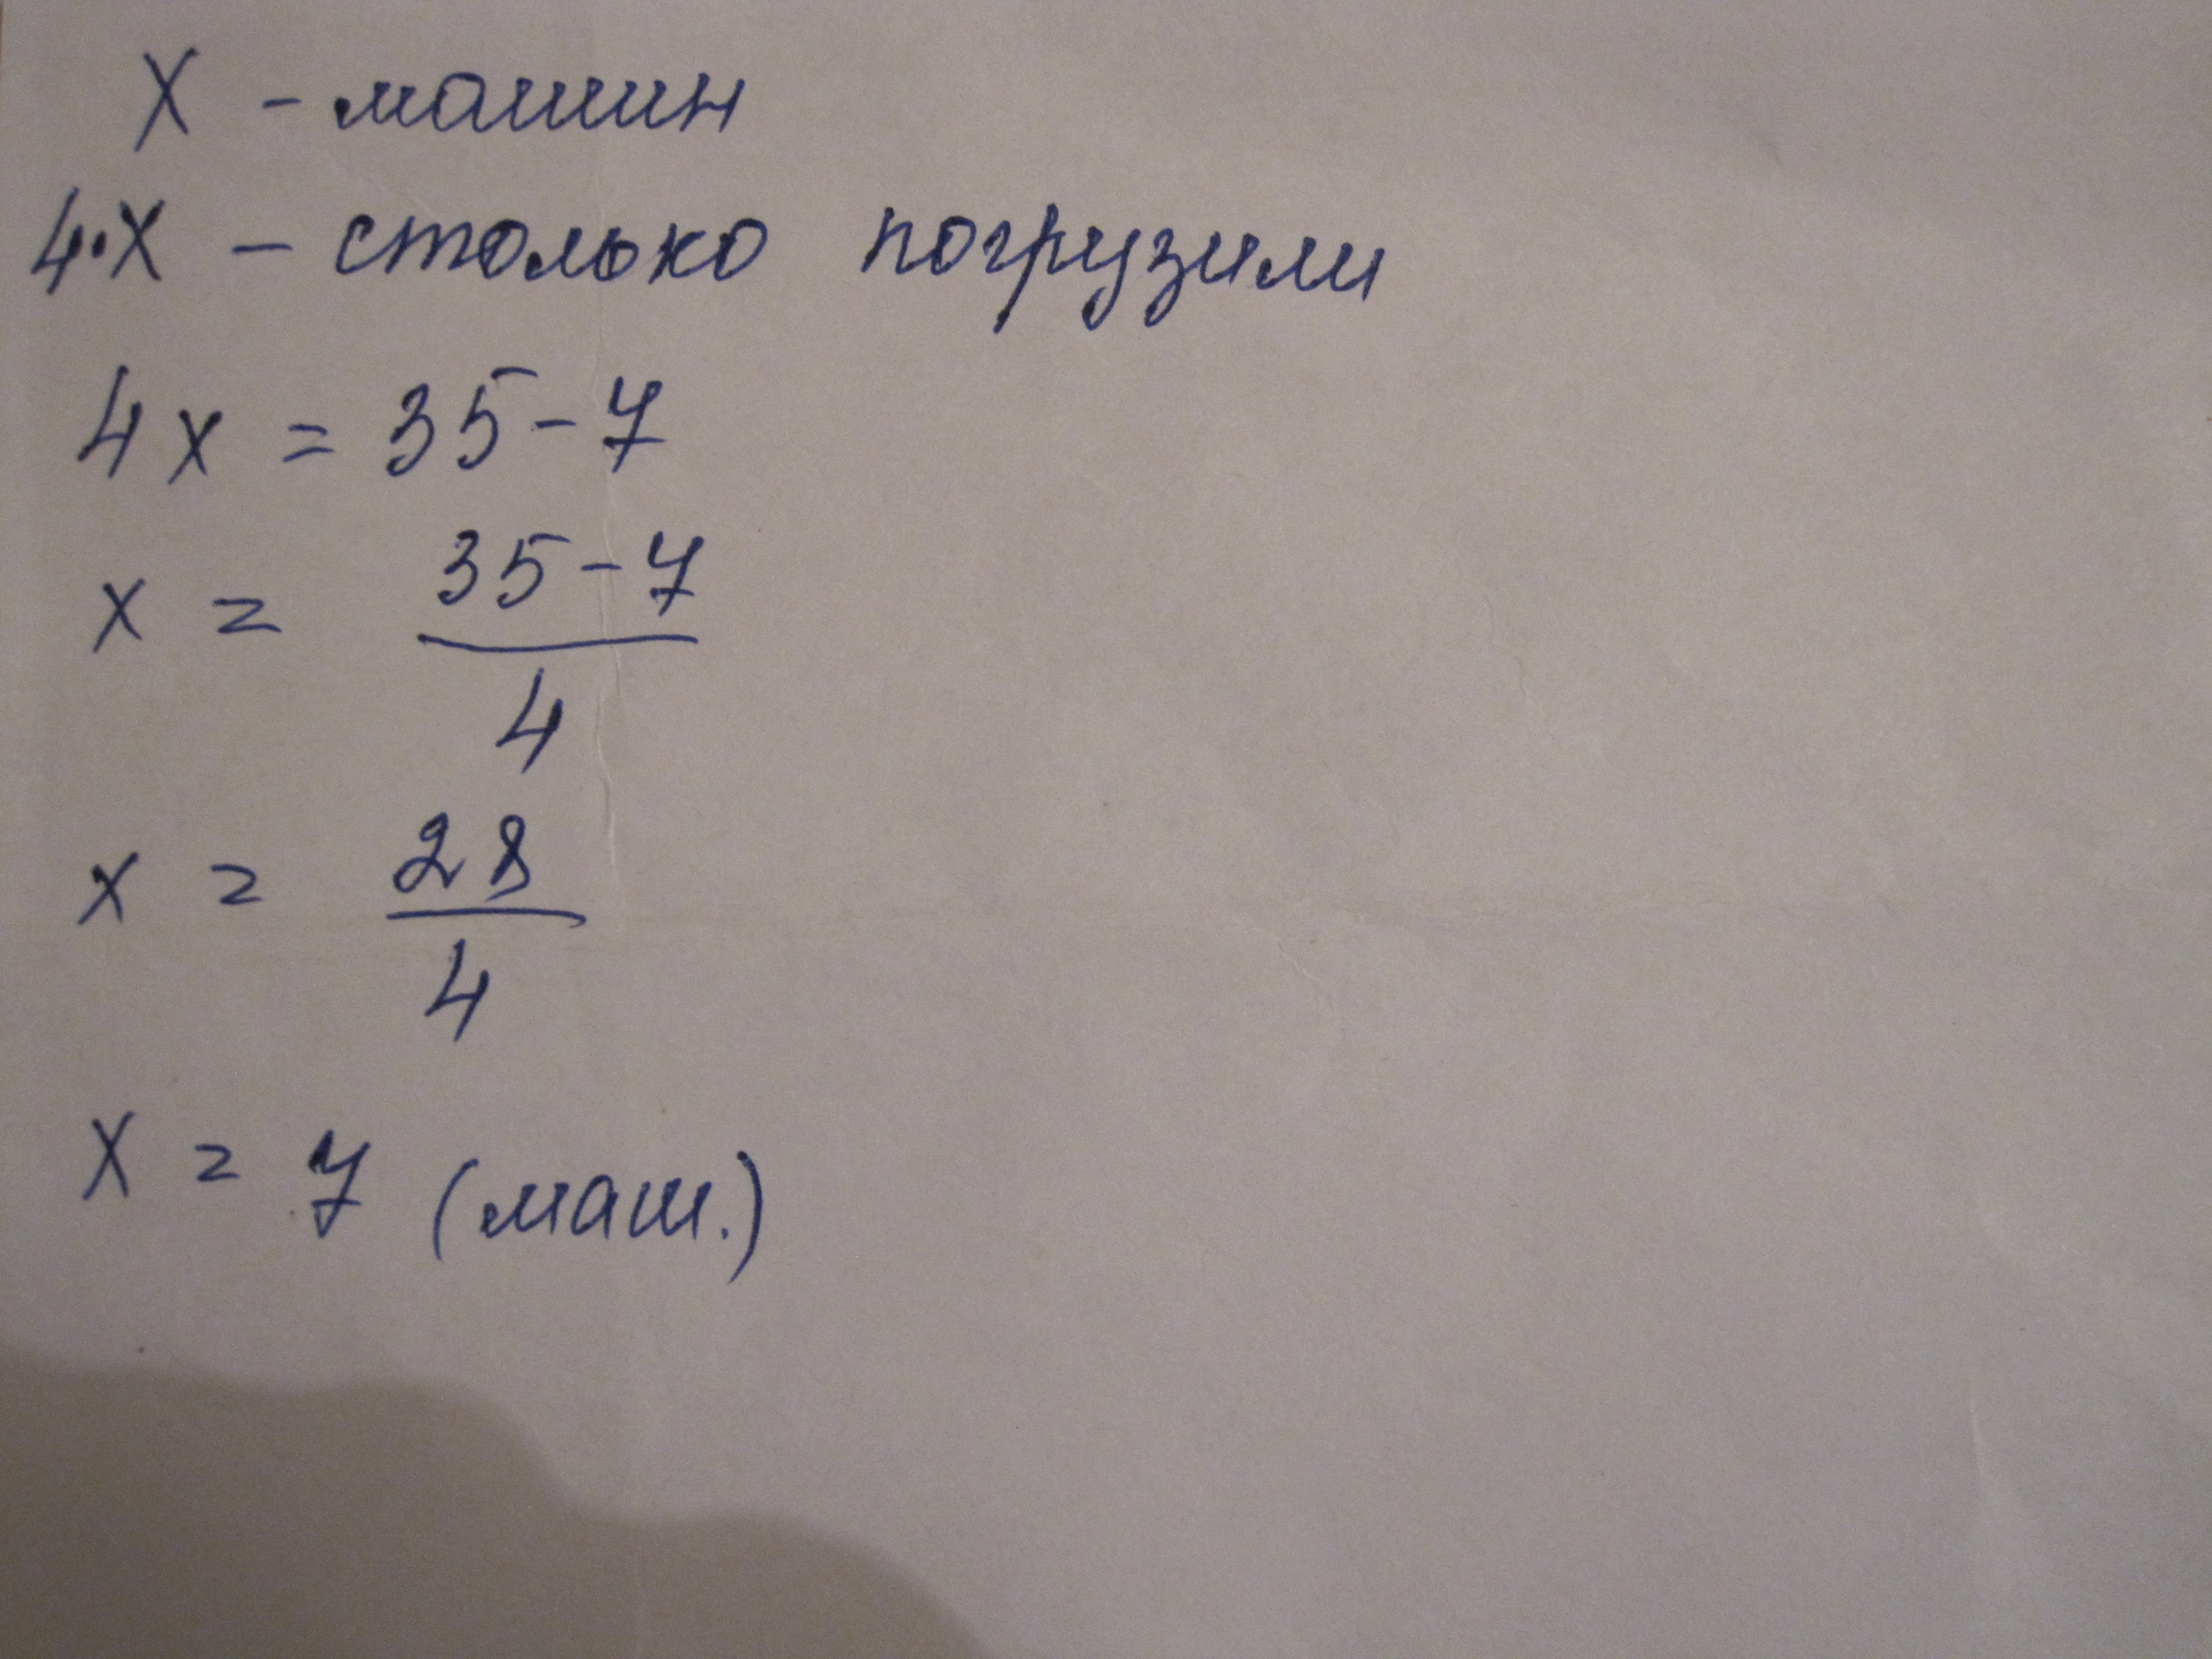 X - машин
4·X - столько погрузили
4x = 35-7
x = 35-7
4
x = 28
4
X = 7 (маш.)